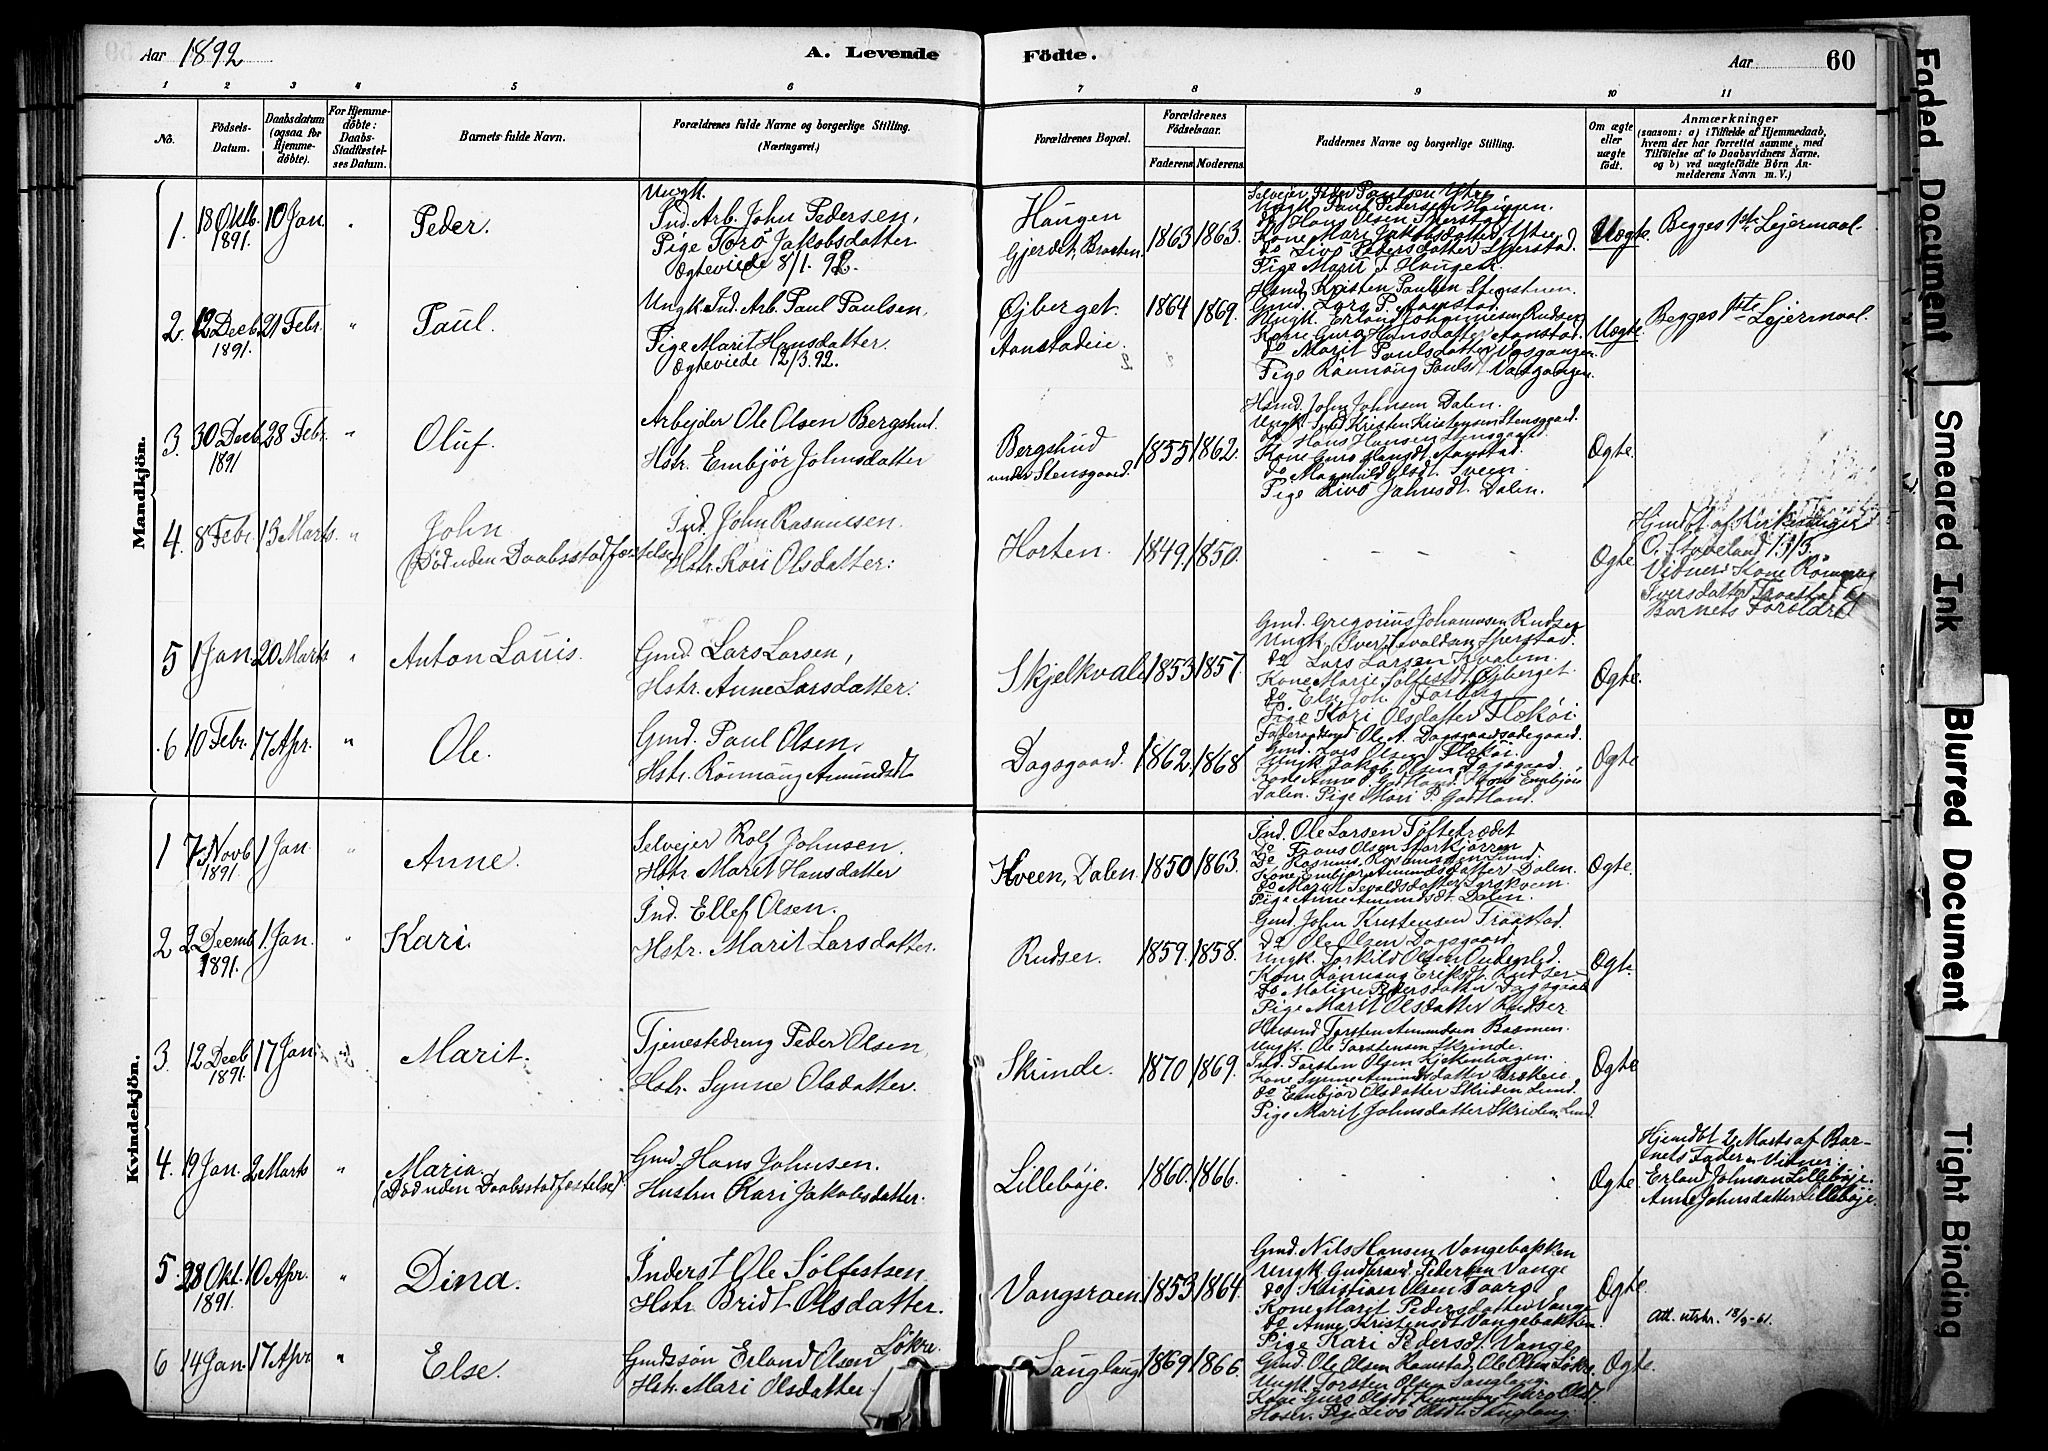 Aar 1892
A. Levende
Födte.
Aar
60
1 2 3 4 5 6 7 8 9 10 11
No.
Födsels-Datum.
Daabsdatum (ogsaa for Hjemmedöbte).
For Hjemmedöbte: Daabs-Stadfæstelses Datum.
Barnets fulde Navn.
Forældrenes fulde Navne og borgerlige Stilling. (Næringsvei.)
Forældrenes Bopæl.
Forældrenes Födselsaar.
Faderens. Moderens.
Faddernes Navne og borgerlige Stilling.
Om ægte eller uægte födt.
Anmærkninger
(saasom: a) i Tilfælde af Hjemmedaab, hvem der har forrettet samme, med Tilföielse af to Daabsvidners Navne, og b) ved uægtefödte Börn Anmelderens Navn m. V.)
Mandkjön.
1. 18 Oktb. 1891. 10 Jan. " Peder.
Ungk.
Ind. Arb. John Pedersen,
Pige Torö Jakobsdatter
Ægteviede 8/1. 92.
Haugen
Gjerdet, Braaten.
1863 1863.
Selveier Peder Paulsen Ystre
Ungk. Paul Pedersen Haugen.
do Hans Olsen Sperstad
Kone Mari Jakobsdatter Ystre
do Livö Pedersdatter Sperstad.
Pige Marit J. Haugen.
Uægte. Begges 1ste Lejermaal.
2. 12 Decb. 1891. 21 Febr. " Paul.
Ungk. Ind. Arb. Paul Paulsen,
Pige Marit Hansdatter.
Ægteviede 12/3. 92.
Øjberget.
Aanstadeie.
1864 1869.
Hsmd. Kristen Paulsen
Gmd. Lars P. Aanstad.
Ungk. Erland Johannesen Rudser
Kone Guro Hansdatter Aanstad.
do Marit Paulsdatter Vasgangen.
Pige Rönnaug Paulsdt Vasgangen.
Uægte. Begges 1ste Lejermaal.
3. 30 Decb. 1891 28 Febr. " Oluf.
Arbejder Ole Olsen Bergshud.
Hstr. Embjör Johnsdatter
Bergshud
under Stensgaard.
1855 1862.
Hsmd. John Johnsen Dalen.
Ungk. Ind. Kristen Kristensen Stensgaard.
do Hans Hansen Stensgaard.
Kone Guro Hansdt. Aanstad.
do Magnhild Olsdt. Sveen.
Pige Livö Johnsdt. Dalen.
Ægte.
4. 8 Febr. 13 Marts. " John
(Död uden Daabsstadfæstelse)
Ind. John Rasmusen.
Hstr. Kari Olsdatter.
Horten. 1849. 1850.
Ægte.
Hjmdbt. af Kirkesanger
O. Stoveland 13/3.
Vidner: Kone Rönnaug
Iversdatter Traastad og
Barnets Forældre
5 1 Jan. 20 Marts " Anton Louis.
Gmd Lars Larsen,
Hstr. Anne Larsdatter.
Skjelkvale 1853 1857.
Gmd. Gregorius Johannesen Rudser
Ungk. Iver Tevaldsen Sperstad.
do Lars Larsen Kvalem.
Kone Marie Sölfestdt. Øjberget
do Else Joh. Forberg
Pige Kari Olsdatter Flækøi.
Ægte.
6 10 Febr. 17 Apr. " Ole.
Gmd. Paul Olsen,
Hstr. Rönnaug Amundsdt.
Dagsgaard. 1862. 1868.
Föderaadsmd Ole A. Dagsgaardsødegaard.
Gmd. Lars Olsen Flækøi.
Ungk. Jakob Olsen Dagsgaard.
Kone Anne O. Godtland. Kone Embjör
Dalen. Pige Mari P. Godtland.
Ægte
Kvindekjön.
1 7 Novb 1891. 1 Jan. " Anne.
Selvejer Rolf Johnsen.
Hstr. Marit Hansdatter
Kveen, Dalen. 1850 1863.
Ind. Ole Larsen Töftetrædet
do Frans Olsen Storkjörren
do Rasmus Rasmussen Lund.
Kone Embjör Amundsdatter Dalen.
do Marit Tevaldsdatter Larskveen.
Pige Anne Amundsdt. Dalen.
Ægte.
2 2 Decemb 1891. 1 Jan. " Kari.
Ind. Ellef Olsen.
Hstr. Marit Larsdatter.
Rudser. 1859. 1858.
Gmd. John Kristensen Traastad.
do Ole Olsen Dagsgaard.
Ungk. Torkild Olsen
Kone Rönnaug Eriksdt. Rudser
do Maline Pedersdatter Dagsgaard
Pige Marit Olsdatter Rudser
Ægte.
3 12 Decb 1891. 17 Jan. Marit.
Tjenestedreng Peder Olsen,
Hstr. Synne Olsdatter.
Skrinde. 1870 1869.
Husmd Torsten Amundsen Baamen.
Ungk. Ole Torstensen Skrinde.
Ind. Torsten Olsen Kjekenhagen.
Kone Synne Amundsdatter Brækeie
do Embjör Olsdatter Skriden Lund.
Pige Marit Johnsdatter Skriden Lund.
Ægte
4. 19 Jan. 2 Marts " Maria.
(Död uden Daabsstadfæstelse)
Gmd. Hans Johnsen.
Hustru Kari Jakobsdatter.
Lillebøje. 1860. 1866.
Ægte.
Hjemdbt 2 Marts af Bar-
nets Fader. Vidner:
Erland Johnsen Lillebøje.
Anne Johnsdatter Lillebøje.
5. 28 Okt. 1891. 10 Apr. " Dina.
Inderst Ole Sölfestsen.
Hstr. Bridt Olsdatter.
Vangsroen. 1853 1864.
Gmd. Nils Hansen Vangebakken
Ungk. Gudbrand Pedersen Vange
do Kristian Olsen Faarö.
Kone Marit Pedersdatter Vange
do Anne Kristensdt Vangebakken.
Pige Kari Pedersdt. Vange
Ægte.
Att. utstr. 18/9-61.
6 14 Jan. 17 Apr " Else.
Gmdssön Erland Olsen Løkre.
Hstr. Mari Olsdatter.
Sanglang 1869 1866.
Gmd. Ole Olsen Hamstad, Ole Olsen Løkre
Ungk. Torsten Olsen Sanglang.
Kone Guro Olsdt. Guro Olsdt.
Hustr. Pige Livö Olsdt. Sanglang.
Ægte.
Faded Document
Smeared Ink
Blurred Document
Tight Binding